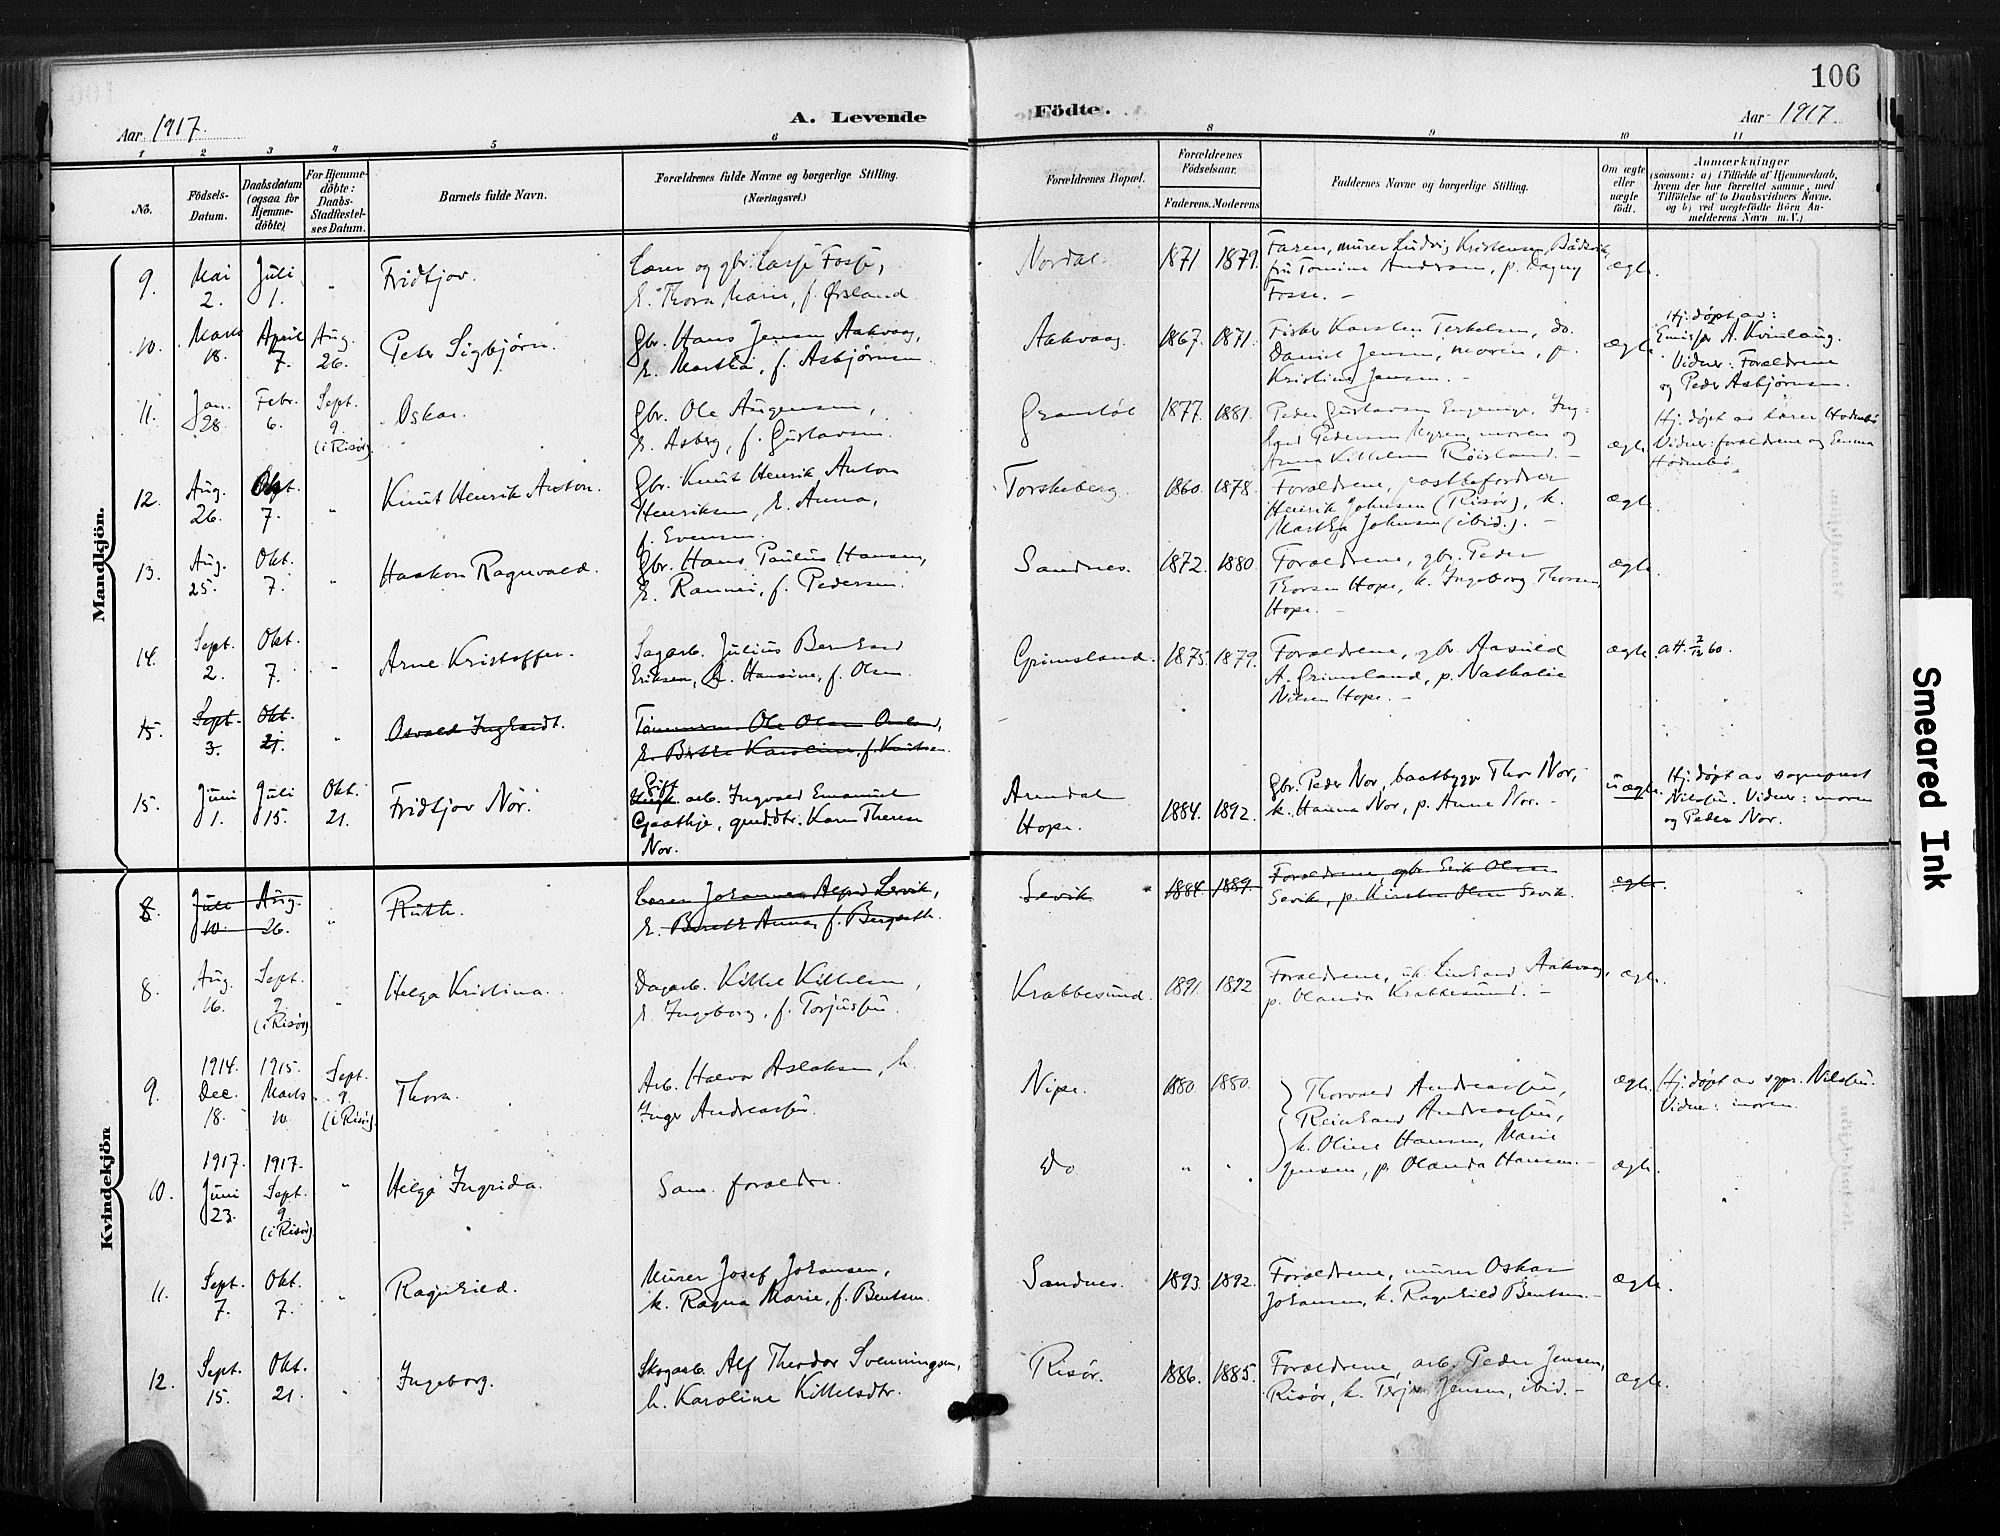 106
Aar 1917.
A. Levende Födte.
Aar 1917.
1 2 3 4 5 6 8 9 10 11
No.
Födsels-Datum.
Daabsdatum (ogsaa for Hjemme-döbte)
For Hjemme-döbte: Daabs-Stadfæstel-ses Datum.
Barnets fulde Navn.
Forældrenes fulde Navne og borgerlige Stilling.
(Næringsvei.)
Forældrenes Bopæl.
Forældrenes Födselsaar.
Faderens. Moderens.
Faddernes Navne og borgerlige Stilling.
Om ægte eller uægte födt.
Anmærkninger
(saasom: a) i Tilfælde af Hjemmedaab,
hvem der har forrettet samme, med
Tilföielse af to Daabsvidners Navne.
og b) ved uægtefödte Börn An-
melderens Navn m. V.)
Mandkjön.
9. Mai 2. Juli 1. " Fridtjov.
Lærer og gbr. Lasse Fosse,
E. Thora Marie, f. Øisland
Nordal. 1871 1879.
Faren, murer Ludvig Kristensen,
fru Tomine Andersen, p. Dagny
Fosse. –
ægte.
10. Marts 18. April 7. Aug. 26. Peter Sigbjörn.
Gbr. Hans Jensen Aakvaag,
E. Martha, f. Asbjörnsen.
Aakvaag 1867. 1871.
Fisker Karsten Terkelsen, do.
Daniel Jensen, moren, p.
Kristine Jensen. –
ægte.
Hj. døpt av:
Emissær A. Kvinlaug.
Vidner: Forældrene
og Peder Asbjörnsen.
11. Jan. 28. Febr. 6. Sept. 9. (i Risör). Oskar.
Gbr. Ole Augensen,
E. Asberg, f. Gustavsen.
1877. 1881.
Peder Gustavsen
Pedersen Myren, moren og
Anna Kittelsen Röisland. –
ægte.
Hj. døpt av lærer Hødnebö
Vidner: forældrene og Emma
Hødnebö.
12. Aug. 26. Okt. 7. " Knut Henrik Anton.
Gbr. Knut Henrik Anton
Henriksen, E. Anna,
f. Evensen.
Torskeberg. 1860. 1878.
Forældrene, postbefordrer
Henrik Johnsen (Risör), k.
Marthea Johnsen (ibid.). –
ægte.
13. Aug. 25. Okt. 7. " Haakon Ragnvald.
Gbr. Hans Paulus Hansen,
E. Rannei, f. Pedersen.
Sandnes. 1872. 1880.
Forældrene, gbr. Peder
Thorsen Hope, k. Ingeborg Thorsen,
Hope. –
ægte.
14. Sept. 2. Okt. 7. " Arne Kristoffer.
Sagarb. Julius Bernhard
Eriksen, h. Hansine, f. Olsen.
Grimsland. 1875. 1879.
Forældrene, gbr. Aasuld
A. Grimsland, p. Nathalie
Nilsen Hope. –
ægte. att. 7/12 60.
15. Sept. 3. Okt. 21. " Osvald Inghardt.
Tömmerm. Ole Olsen
E. Berthe Karoline, f. Knutsen.
15. Juni 1. Juli 15. Okt. 21. Fridtjov Nor.
Gift
arb. Ingvald Emanuel
Gaathje, gmd.dtr. Karen Therese
Nor.
Arendal
Hope.
1884. 1892.
Gbr. Peder Nor, baatbygger Thor Nor,
k. Hanna Nor, p. Anne Nor. –
uægte.
Hj. døpt av sogneprest
Nilssen. Vidner: moren
og Peder Nor.
Kvindekjön
8. Juli 10. Aug. 26. " Ruth.
Lærer Johannes Alfred Sevik,
E. Berthe Anna, f. Bergseth.
Sevik 1884. 1889.
Forældrene, gbr. Erik Olsen
Sevik, p. Kirsten Olsen Sevik.
ægte.
8. Aug. 16. Sept. 2. (i Risör). " Helga Kristina.
Dagarb. Kittel Kittelsen,
E. Ingeborg, f. Torjussen.
Krabbesund. 1891. 1892
Forældrene, Aakvaag,
p. Olanda Krabbesund. –
ægte.
9. 1914. Dec. 18. 1915. Marts 10. Sept. 9. (i Risör). Thora.
Arb. Halvor Aslaksen, h.
Inger Andreassen.
Nipe. 1880. 1880.
Thorvald Andreassen,
Reinhard Andreassen,
k. Oline Hansen, Marie
Jensen, p. Olanda Hansen. –
ægte.
Hj. døpt av sgpr. Nilssen.
Vidne: moren.
10. 1917. Juni 23. 1917. Sept. 9. (i Risör). " Helga Ingrida.
Sam. forældre.
Do " "
ægte.
11. Sept. 7. Okt. 7. " Ragnhild.
Murer Josef Johansen,
h. Ragna Marie, f. Bentsen.
Sandnes. 1893. 1892.
Forældrene, murer Oskar
Johansen, k. Ragnhild Bentsen. –
ægte.
12. Sept. 15. Okt. 21. " Ingeborg.
Skogarb. Alf Theodor Svenningsen,
h. Karoline Kittelsdtr.
Risör. 1886. 1885.
Forældrene, arb. Peder Jensen,
Risör, k. Terje Jensen, ibid. –
ægte.
Smeared Ink